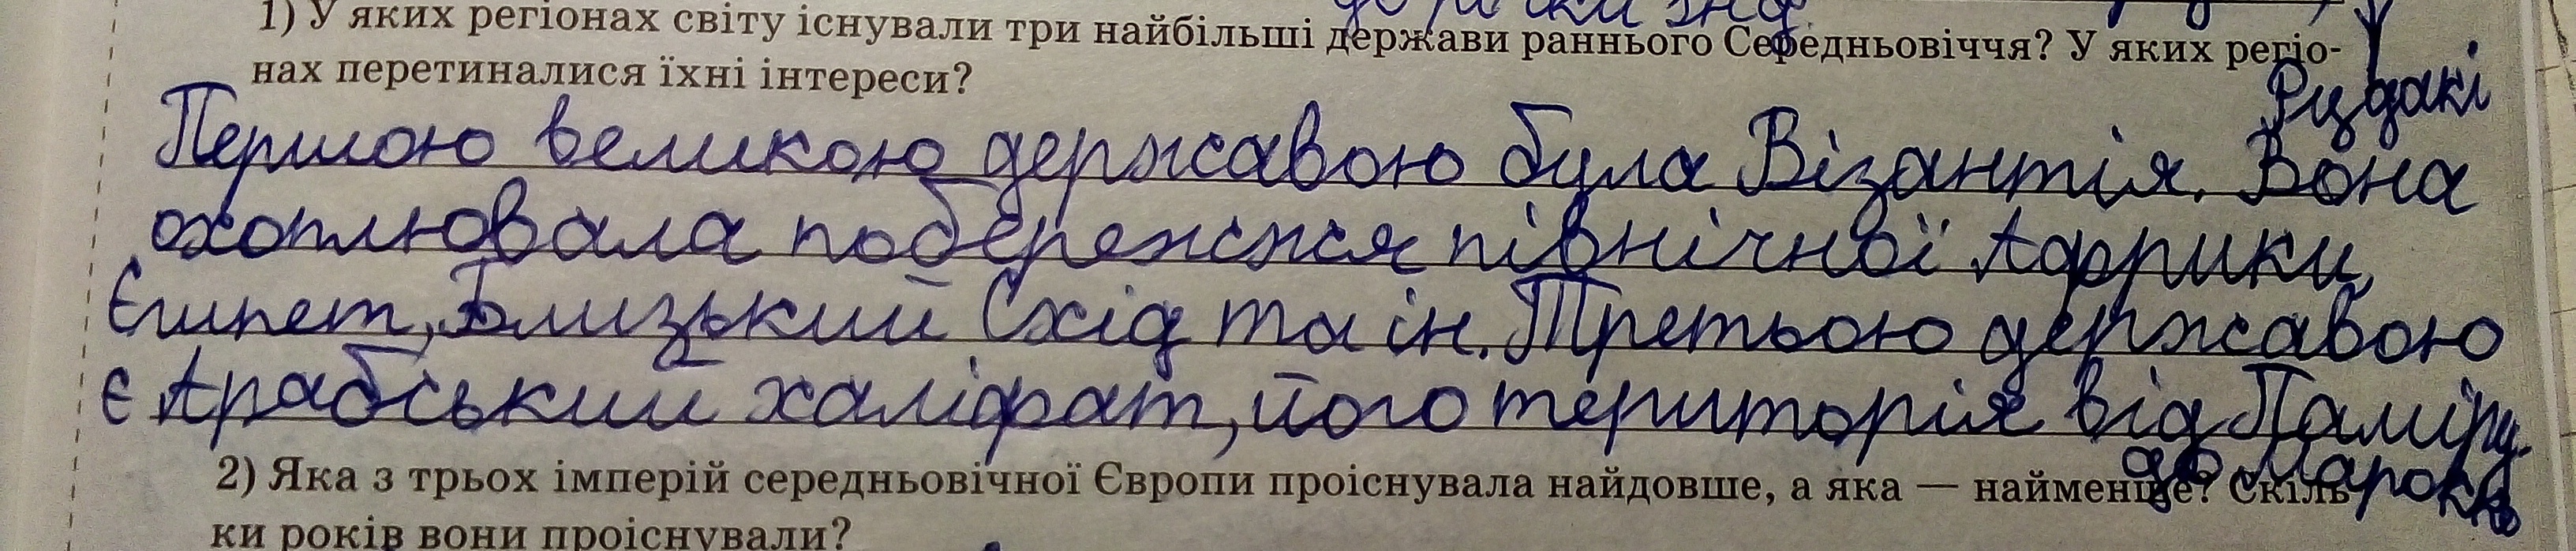 1) У яких регіонах світу існували три найбільші держави раннього Середньовіччя? У яких регіо-
нах перетиналися їхні інтереси?
Першою великою державою була Візантія. Вона
охоплювала побережжя північної Африки,
Єгипет, Близький Схід та ін. Третьою державою
є Арабський халіфат, його територія від Паміру
до Марокко
2) Яка з трьох імперій середньовічної Європи проіснувала найдовше, а яка — найменше? Скіль-
ки років вони проіснували?